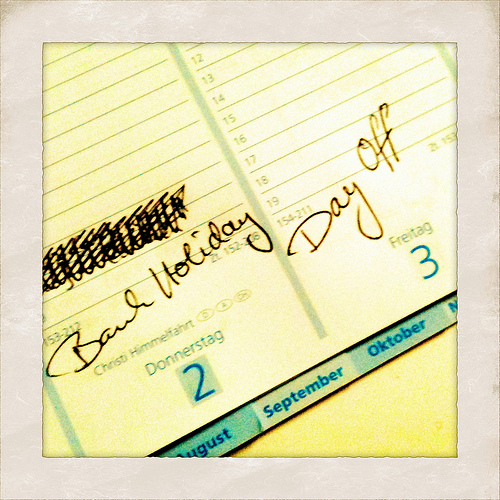 12
13
14
15
16
17
18
19
153-212
Bank Holiday
Zl. 152-
Christi Himmelfahrt
Donnerstag
2
154-211
Day Off
Zl. 153
Freitag
3
ugust
September
Oktober
N